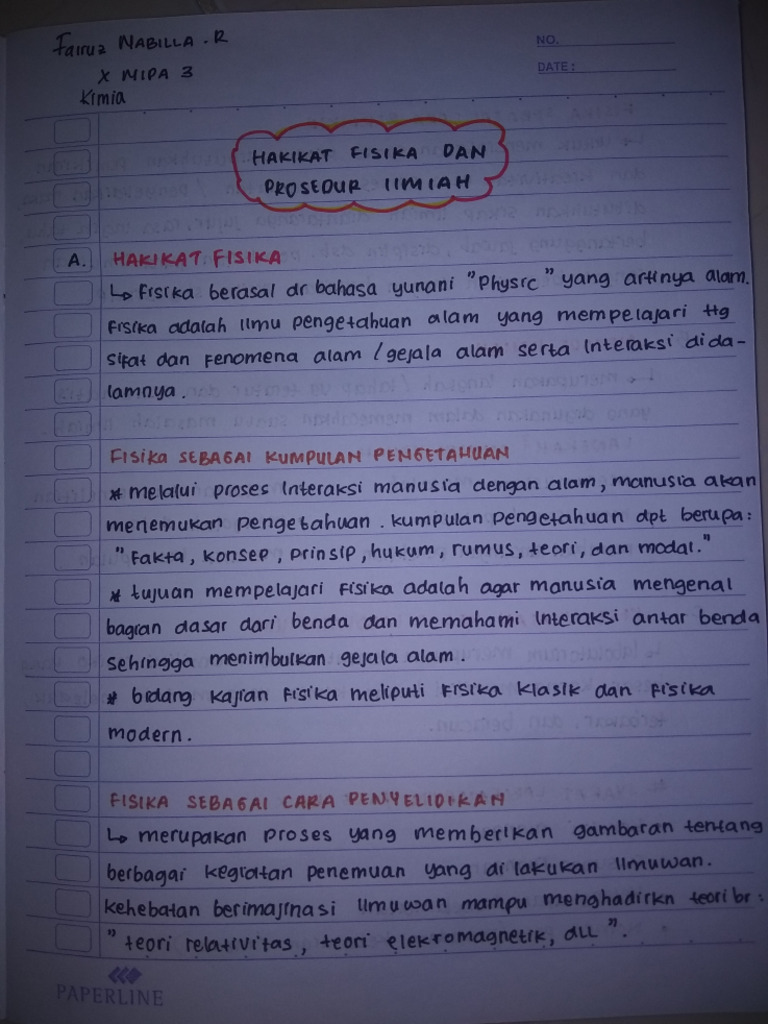 Fairuz NABILLA . R
X MIPA 3
Kimia
NO.
DATE :
HAKIKAT FISIKA DAN
PROSEDUR IIMIAH
A. HAKIKAT FISIKA
↳ Fisika berasal dr bahasa yunani "Physic" yang artinya alam.
Fisika adalah Ilmu pengetahuan alam yang mempelajari ttg
sifat dan Fenomena alam / gejala alam serta Interaksi dida-
lamnya.
FISIKA SEBAGAI KUMPULAN PENGETAHUAN
* melalui proses Interaksi manusia dengan alam, manusia akan
menemukan pengetahuan. kumpulan pengetahuan dpt berupa:
"Fakta, konsep, prinsip, hukum, rumus, teori, dan modal."
* tujuan mempelajari Fisika adalah agar manusia mengenal
bagian dasar dari benda dan memahami Interaksi antar benda
sehingga menimbulkan gejala alam.
* bidang kajian Fisika meliputi Fisika klasik dan Fisika
modern.
FISIKA SEBAGAI CARA PENYELIDIKAN
↳ merupakan proses yang memberikan gambaran tentang
berbagai kegiatan penemuan yang di lakukan Ilmuwan.
kehebatan berimajinasi Ilmuwan mampu menghadirkn teori br:
"teori relativitas, teori elekromagnetik, dLL".
PAPERLINE